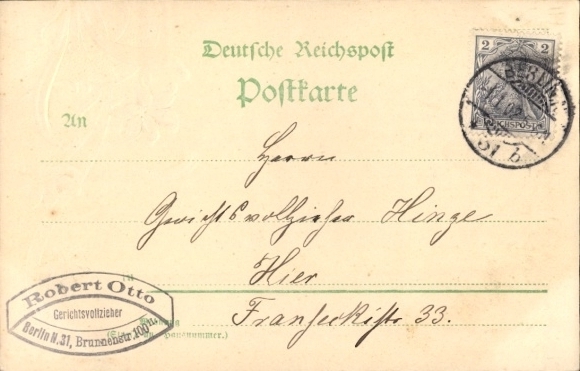 Deutsche Reichspost
Postkarte
2 2
REICHSPOST
BERLIN
31 b
An
Herrn
Gerichtsvollzieher Hinze
Hier
Franseckistr. 33.
Robert Otto
Gerichtsvollzieher
Berlin N.31, Brunnenstr. 100
Hausnummer.)